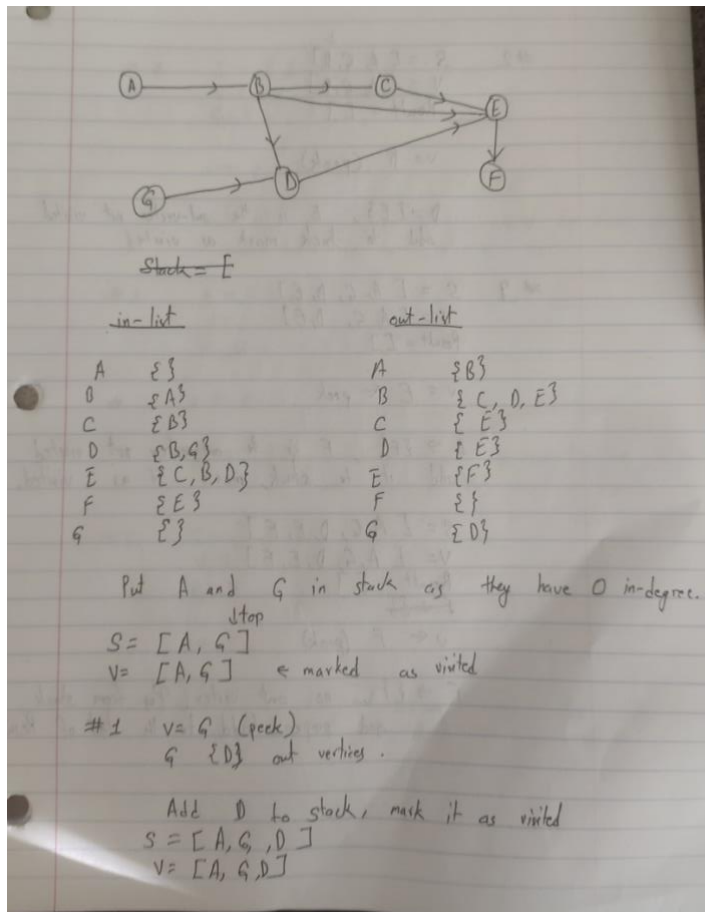 A B C
E
G D F
Stack = [
in-list out-list
A {} A {B}
B {A} B {C, D, E}
C {B} C {E}
D {B,G} D {E}
E {C, B, D} E {F}
F {E} F {}
G {} G {D}
Put A and G in stack as they have 0 in-degree.
↓top
S= [A, G]
V= [A, G] ← marked as visited
#1 V= G (peek)
G {D} out vertices.
Add D to stack, mark it as visited
S = [A, G, D]
V= [A, G, D]